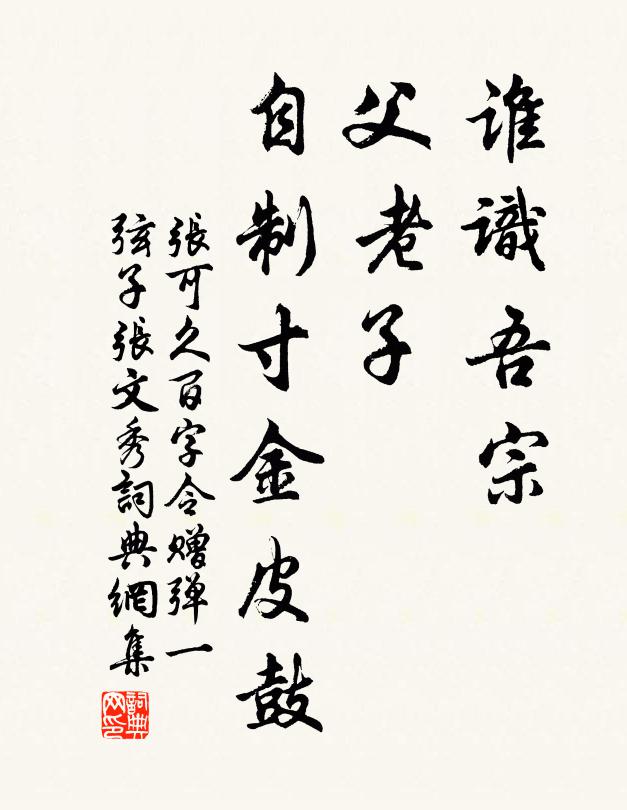 誰識吾宗
父老子
自制寸金皮鼓
張可久百字令赠弹一
弦子張文秀詞典網集
詞典网印